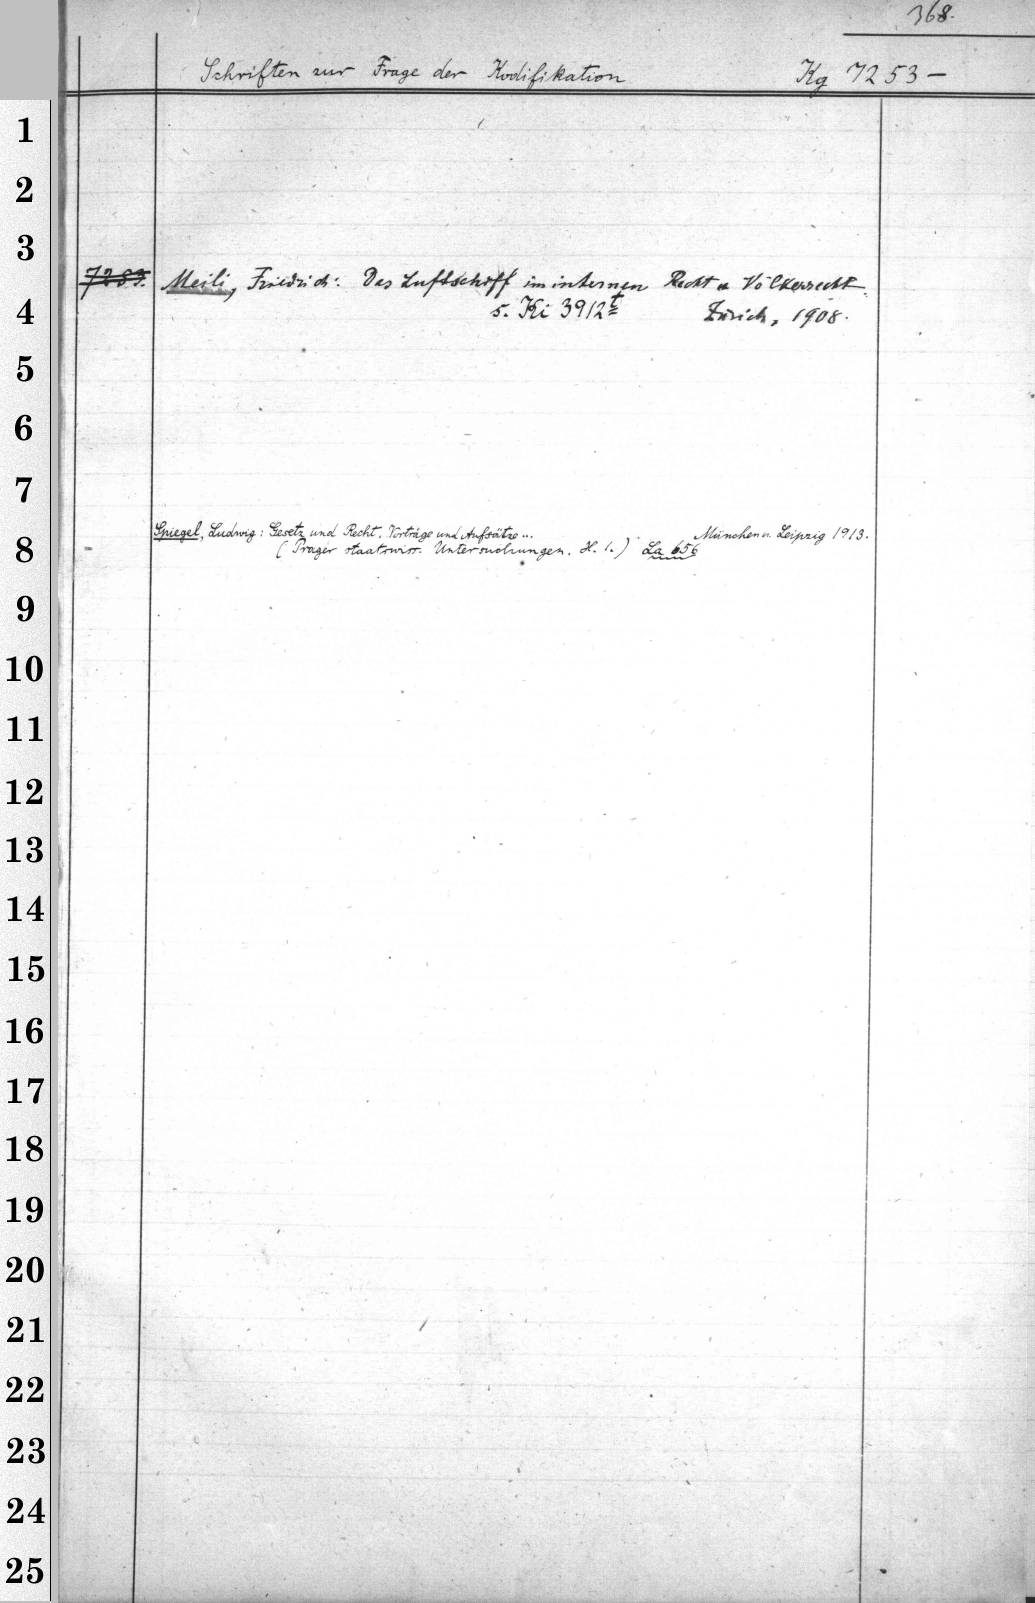 368.
Schriften zur Frage der Kodifikation Kg 7253-
1
2
3
7283. Meili, Friedrich: Das Luftschiff im internen Recht u Völkerrecht.
4 s. Ki 3912t Zürich, 1908.
5
6
7
Spiegel, Ludwig: Gesetz und Recht. Vorträge und Aufsätze... München u. Leipzig 1913.
8 (Prager staatswiss. Untersuchungen. H. 1.) La 656
9
10
11
12
13
14
15
16
17
18
19
20
21
22
23
24
25